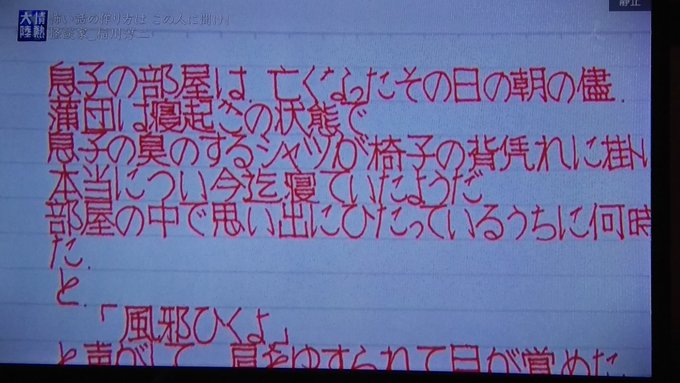 情熱大陸
怖い話の作り方は この人に聞け!
怪談家_稲川淳二
静止
息子の部屋は、亡くなったその日の朝の儘、
蒲団は寝起きの状態で
息子の臭のするシャツが椅子の背凭れに掛
本当につい今迄寝ていたようだ
部屋の中で思い出にひたっているうちに何時
た、
と、
「風邪ひくよ」
と声がして、肩をゆすられて目が覚めた